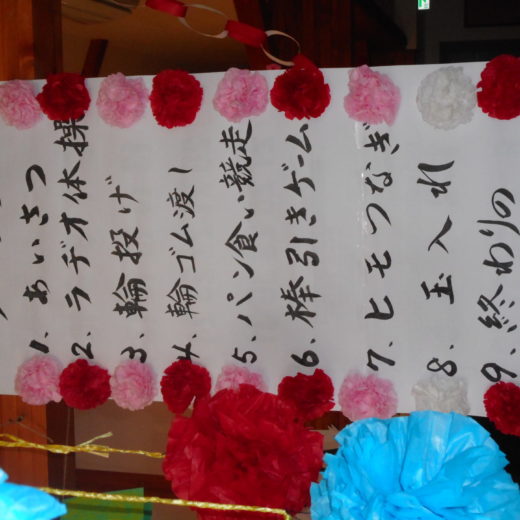 1. あいさつ
2. ラデオ体操
3. 輪投げ
4. 輪ゴム渡し
5. パン食い競走
6. 棒引きゲーム
7. ヒモつなぎ
8. 玉入れ
9. 終わりの